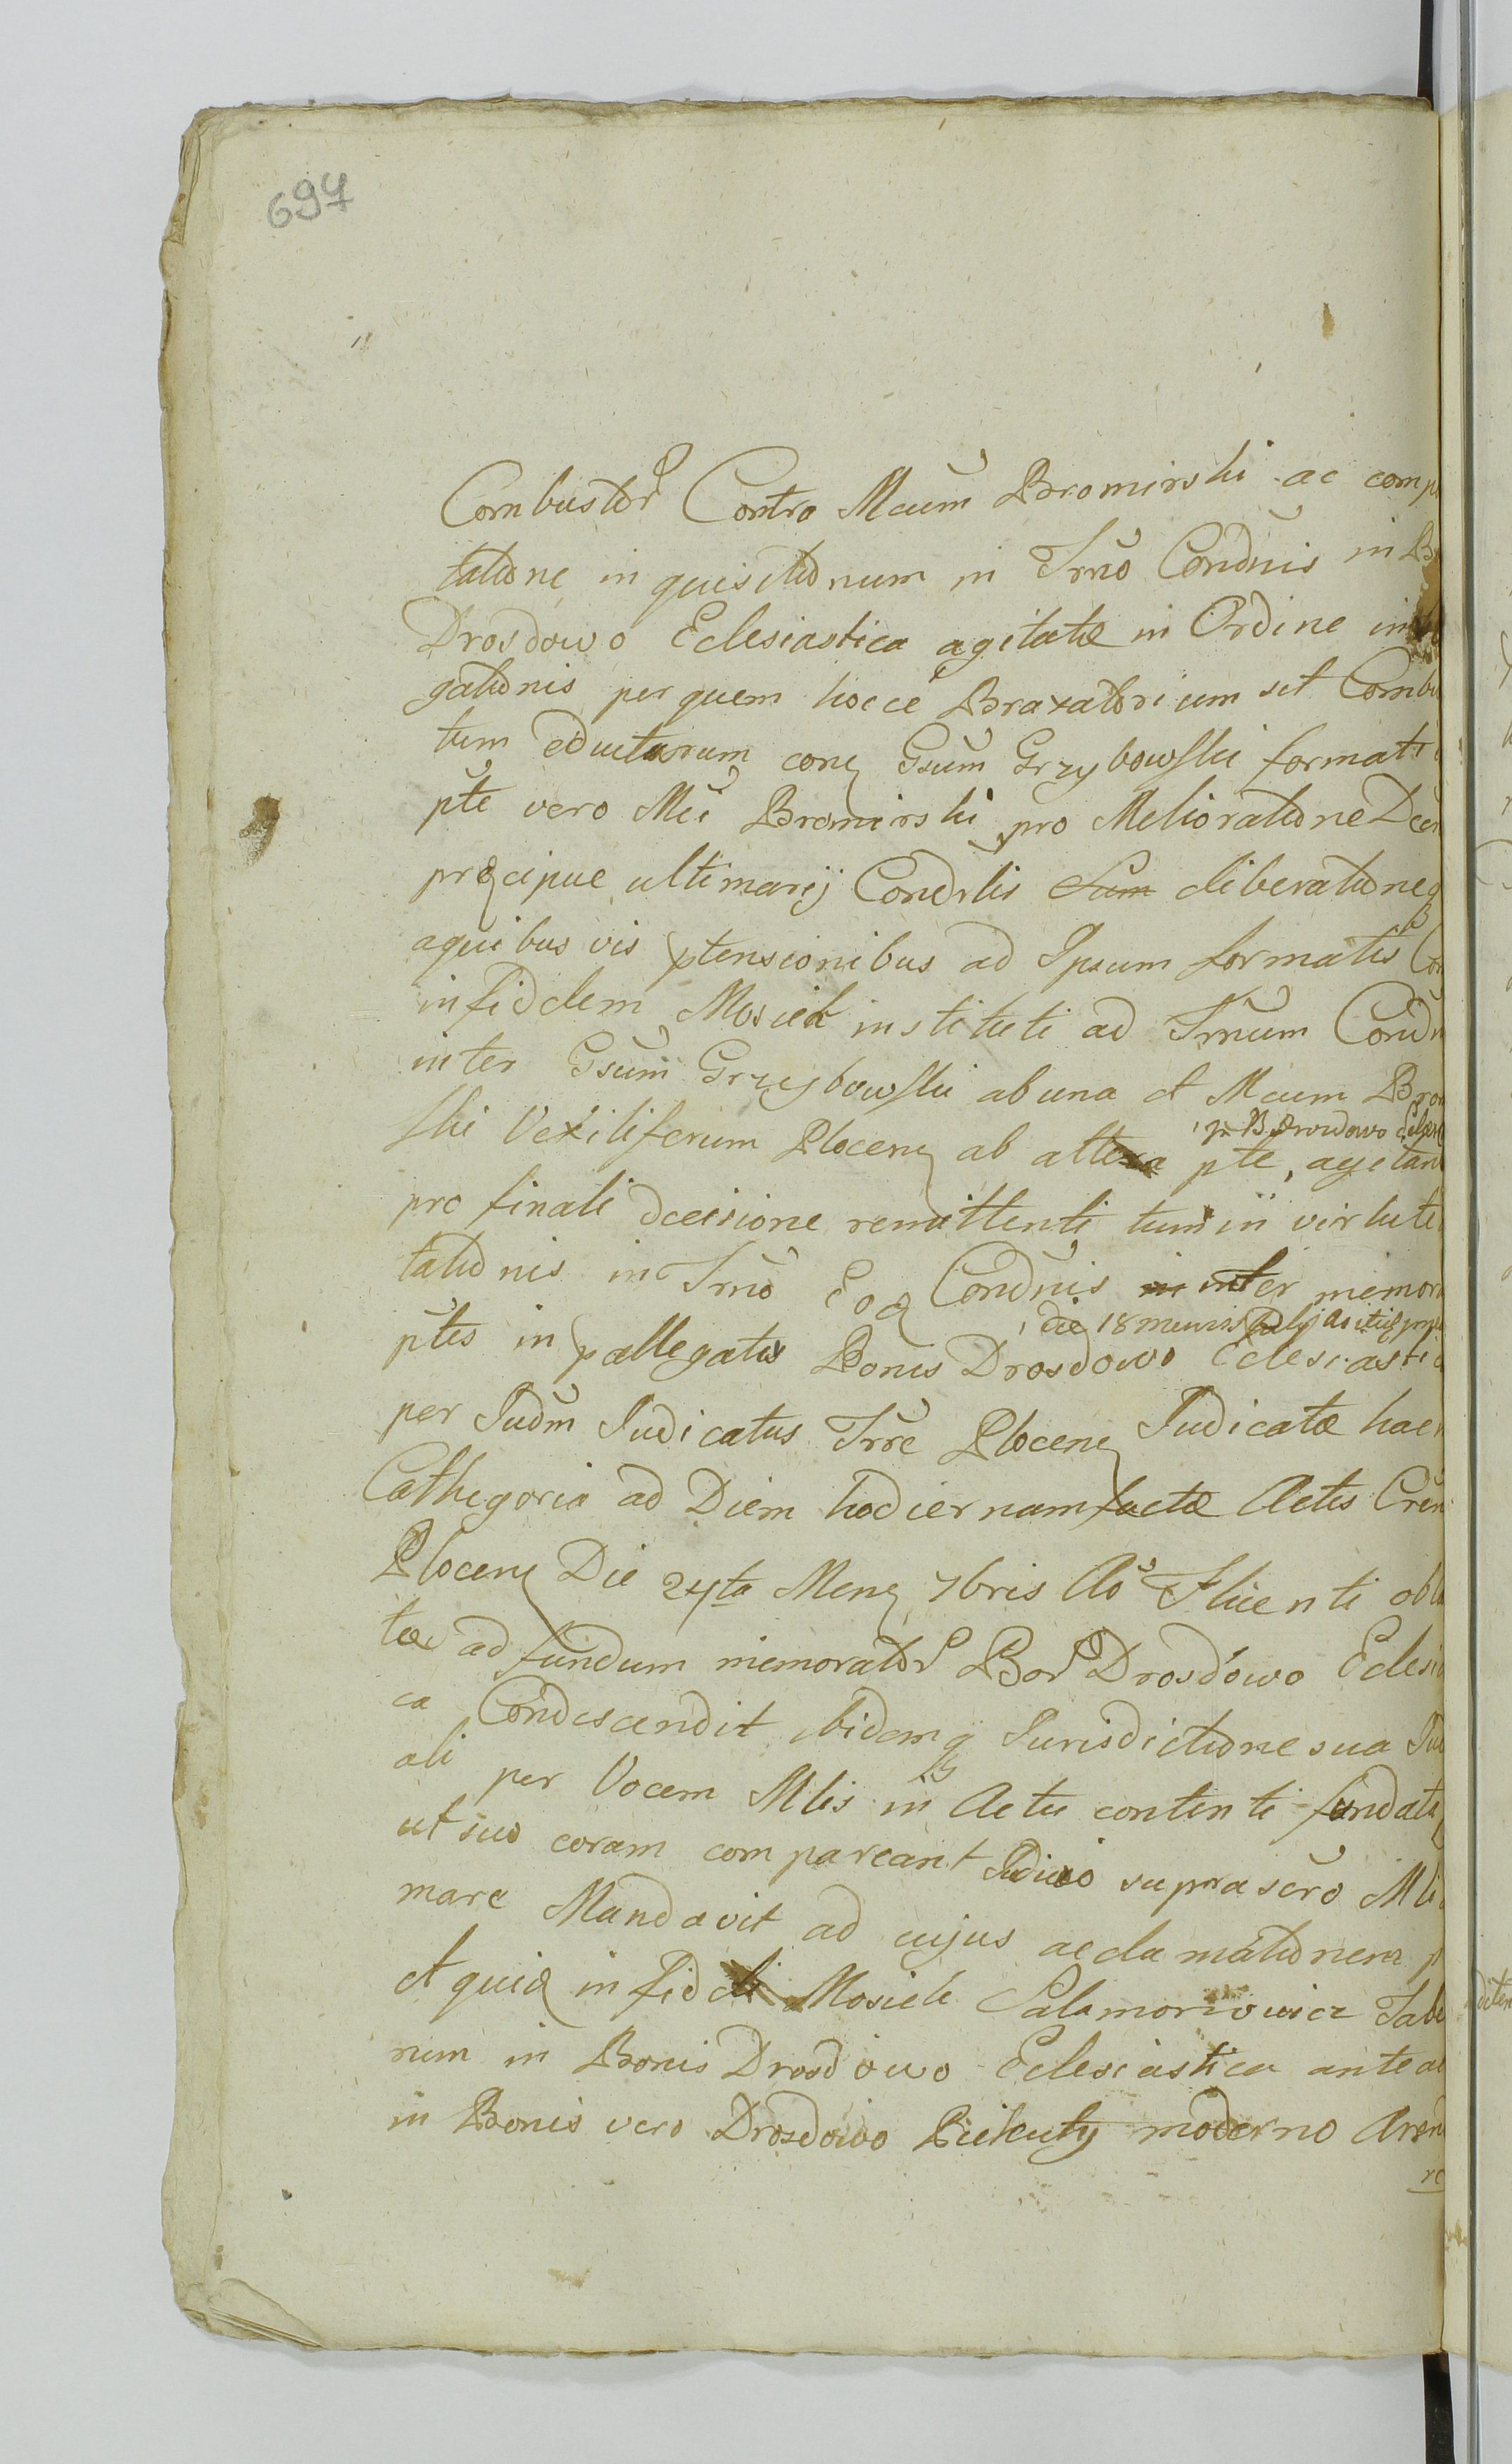 697
Combustor Contra Mcum Bromirski ac comp
tatione inquisitionum in Trno Condnis in B
Drosdowo Eclesiastica agitatæ in Ordine in
gationis per quem hocce Braxatorium sit Combu
tum eductarum conq Gsum Grzybowski format
pte vero Mci Bromirski pro Melioratione Dec
præcipue ultimarij Condrlis liberatione
aquibus vis ptensionibus ad Ipsum formatis Con
infidelem Mosiek instituti ad Trnum Condn
inter Gsum Grzybowski abuna et Mcum Bro
ski Vexiliferum Plocenq ab altera pte, agitan
in B Drosdowo Ecles
pro finali decisione remittenti tum in virtute
tationis in Trno Eoq Condnis inter memor
ptes in pallegatis Bonis Drosdowo Eclesiasti
die 18 mensis July
per Judm Judicatus Trre Plocenq Judicatæ hac
Cathegoria ad Diem hodiernam factæ Actis Cren
Plocenq Die 24ta Menq 7bris Ao Fluenti obla
tæ ad fundum memorator Bor Drosdowo Eclesia
ca Condescendit ibidemq Jurisdictione sua Jud
ali per Vocem Mlis in Actu contenti fundata
ut suo coram compareant Judicio suprascro Mli
mare Mandavit ad cujus acclamationem p
et quia infideli Mosiek Salamonowicz Tabe
rum in Bonis Drosdowo Eclesiastica antea
in Bonis vero Drosdowo Biekuty moderno Aren
re